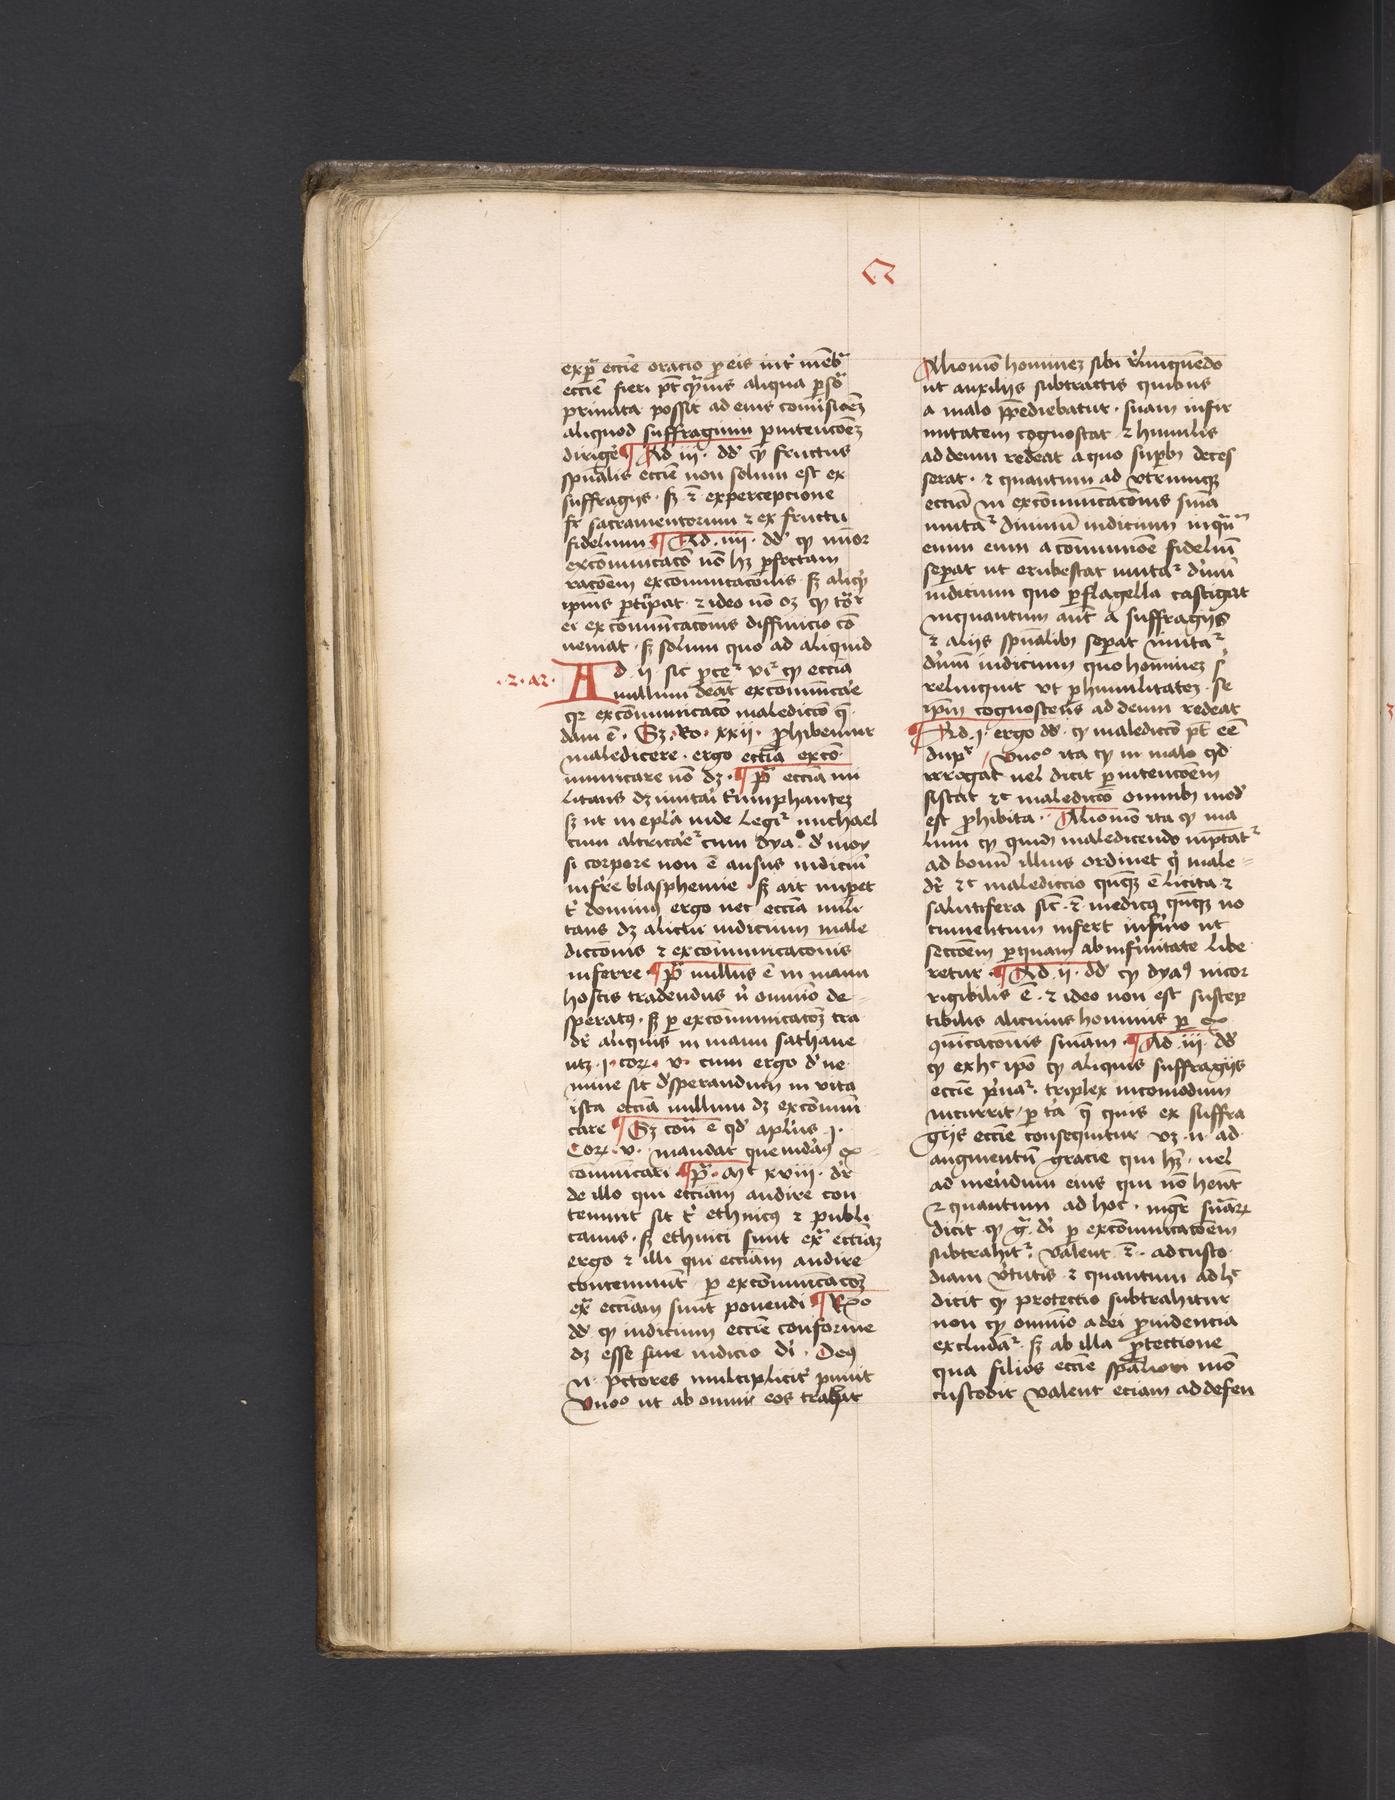 exp̄ eccīe oracio p eis int̄ mēb
eccīe fieri pt̄ q̄mis aliqua p̄so
priuata possit ad eius com̄isiōez
aliquod suffragium p̄nitencōez
dirige ¶ Ad iii. dd qp fructus
spūalis eccīe non solum est ex
suffragijs. sz eciā ex percepcione
sacramentorum ⁊ ex fructu
fidelium ¶ Ad. iiii. dd qp minor
excōmunicacō nō hz pfectam
racōem excōmunicacōnis. sz aliqͥ
ipīus pticipat. ⁊ ideo nō oz qp
ei excōmunicacōnis diffinicio cō
ueniat. sz solum quo ad aliquid
.2. ar. Ad .ii. sic pcer vr qp eccīa
nullum debeat excōmunicāe
qr excōmunicacō maledictō q̄
dam ē. Sz. Ro. xxii. phibemur
maledicere. ergo eccīa excō
municare nō dz. ¶ p̄ eccīa mi
litans dz imitari triumphantez
sz ut in epl̄a iude legir michael
cum altercāer cum dyaᵒ. d̄ moy
si corpore non ē ausus iudiciū
inferre blasphemie. sz ait imperet
t̄ dominꝰ ergo nec eccīa mili
tans dz alicui iudicium male
dictōnis ⁊ excōmunicacōnis
inferre ¶ p̄ nullus ē in manu
hostis tradendus n̄ omnīo de
speratꝰ. sz p excōmunicacōz tra
dr̄ aliquis in manu sathane
utz .i. cor. v. cum ergo d̄ ne
mine sit d̄sperandum in vita
ista eccīa nullum dz excōmuni
care ¶ Sz cont̄ ē qd̄ apl̄us .i.
Cor. v. mandat quendā ex
comunicari ¶ p̄. Mt xviii. dr̄
de illo qui eccīam audire con
tempnit sit t̄ ethnicꝰ ⁊ publi
canus. sz ethnici sunt ex̄ eccīaz
ergo ⁊ illi qui eccīam audire
contempnūt p excōmunicacōz
ex̄ eccīam sunt ponendi ¶ Rᵒ
dd qp iudicium eccīe conforme
dz esse siue iudicio di. Deꝰ
n. pctores multiplicit̄ punit
Vnoᵒ ut ab omni eos trahit
Aliomō hominez sibi relinquendo
ut auxilijs subtractis quibus
a malo ppediebatur. suam infir
mitatem cognoscat ⁊ humilis
ad deum redeat a quo supbu deces
serat. ⁊ quantum ad vtrumqz
eccīa in excōmunicacōnis snīa
imitar diuinū iudicium inqn̄
enim eum a cōmunioe fideliū
sepat ut erubescat imitar diuinū
iudicium quo p flagella castigat
inquantum aut̄ a suffragijs
⁊ alijs spūalibꝰ sepat imitar
diuinū iudicium quo hominez s
relinquit vt p humilitatez se
ipm̄ cognoscens ad deum redeat
¶ Ad .i. ergo dd. qp maledictō pt̄ eē
dupr. Vnoᵒ ita qp in malo qd
irrogat uel dicit p intencōem
sistat ⁊c maledictō omnibꝰ mod
est phibita. Aliomō ita qp ma
lum qp quidz maledicendo inpꝛ̄catr
ad bonū illius ordinet q̄ male
dr̄ ⁊c maledictio qnqz ē licita ⁊
salutifera sic̄. ⁊ medicꝰ qnqz no
cumentum infert infirmo ut
sectōem p quam ab infirmitate libe
retur. ¶ Ad .ii. dd qp dyaꝰ incor
rigibilis ē. ⁊ ideo non est suscep
tibilis alicuius hominis p ex
9unicacōnis snīam. ¶ Ad .iii. dd
qp ex hͨ ipō qp aliquis suffragijs
eccīe p̄uar. triplex incomodum
incurrit p tia q̄ quis ex suffra
gijs eccīe consequitur vz. n. ad
augmentū gracie qui hz. uel
ad merendum eius qui nō hent
⁊ quantum ad hoc. mgr̄ sn̄iarꝝ
dicit qp ḡ. di p excōmunicacōem
subtrahitr. valent ⁊. ad custo
diam v̄tutis ⁊ quantum ad hͨ
dicit qp protectio subtrahitur
non qp omnīo a dei puidencia
excludār. sz ab illa p̄tectione
qua filios eccīe spāliori mō
custodit valent eciam ad defen